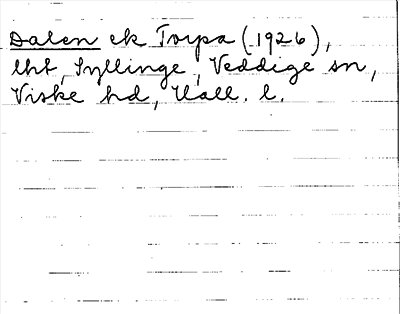 Dalen ek Torpa (1926),
lht, Syllinge, Veddige sn,
Viske hd, Hall. l.